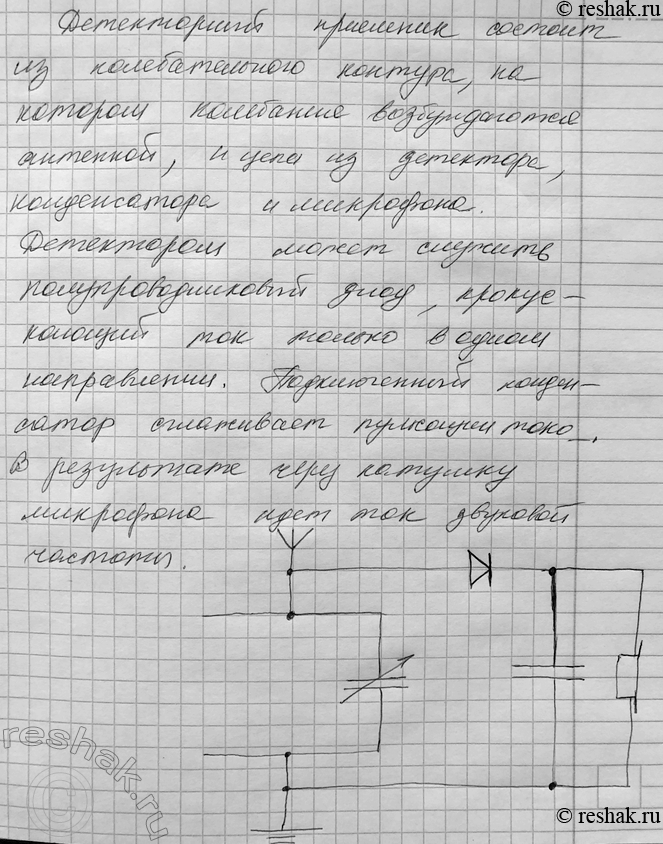 © reshak.ru
Детекторный приемник состоит
из колебательного контура, на
котором колебание возбуждаются
антенной, и цепи из детектора,
конденсатора и микрофона.
Детектором может служить
полупроводниковый диод, пропус-
кающий ток только в одном
направлении. Подключенный конден-
сатор сглаживает пульсации тока.
В результате через катушку
микрофона идет ток звуковой
частоты.
reshak.ru
©
© reshak.ru